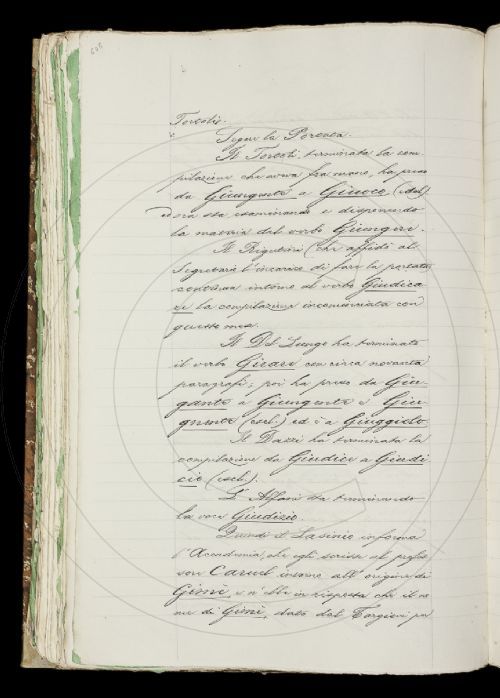 608
Tortoli.
Segue la Porcaca.
Il Tortoli, terminata la com-
pilazione che aveva fra mano, ha preso
da Giungente a Giuoco (incl.)
ed ora sta esaminando e disponendo
la materia del verbo Giungere.
Il Rigutini (cui affidò al
Segretario l'incarico di fare la
continua intorno al verbo Giudica
re la compilazione incominciata con
questo mese.
Il Del Lungo ha terminato
il verbo Girare con circa novanta
paragrafi; poi ha preso da Giu-
gante a Giungente e Giu-
gnente (escl.) ed è a Giuggiolo.
Il Dazzi ha terminata la
compilazione da Giudice a Giudi
cio (escl.).
L'Alfani sta terminando
la voce Giudizio.
Quindi il Lasinio informa
l'Accademia, che egli scrisse al profes
sore Caruel intorno all'origine di
Gimè, e n'ebbe in risposta che il no
me di Gimè, dato dal Targioni per